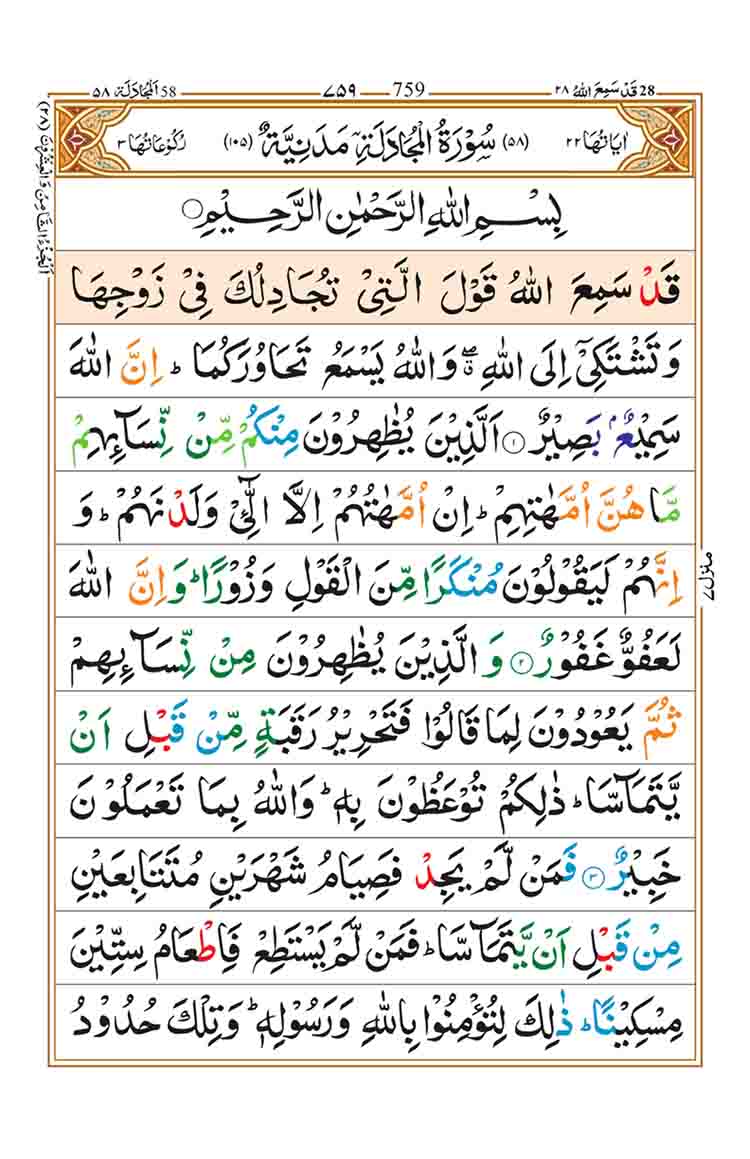 28 قَدْ سَمِعَ اللّٰهُ ٢٨ 759 ٧٥٩ 58 اَلْمُجَادَلَة ٥٨
اٰيَاتُهَا ٢٢ (٥٨) سُوْرَةُ الْمُجَادَلَةِ مَدَنِيَّةٌ (١٠٥) رُكُوْعَاتُهَا ٣
بِسْمِ اللّٰهِ الرَّحْمٰنِ الرَّحِيْمِ ○
قَدْ سَمِعَ اللّٰهُ قَوْلَ الَّتِيْ تُجَادِلُكَ فِيْ زَوْجِهَا
وَ تَشْتَكِيْۤ اِلَى اللّٰهِ ۖۗ وَاللّٰهُ يَسْمَعُ تَحَاوُرَكُمَا ؕ اِنَّ اللّٰهَ
سَمِيْعٌۢ بَصِيْرٌ ١ اَلَّذِيْنَ يُظٰهِرُوْنَ مِنْكُمْ مِّنْ نِّسَآىِٕهِمْ
مَّا هُنَّ اُمَّهٰتِهِمْ ؕ اِنْ اُمَّهٰتُهُمْ اِلَّا الّٰٓـِٔيْ وَلَدْنَهُمْ ؕ وَ
اِنَّهُمْ لَيَقُوْلُوْنَ مُنْكَرًا مِّنَ الْقَوْلِ وَزُوْرًا ؕ وَاِنَّ اللّٰهَ
لَعَفُوٌّ غَفُوْرٌ ٢ وَ الَّذِيْنَ يُظٰهِرُوْنَ مِنْ نِّسَآىِٕهِمْ
ثُمَّ يَعُوْدُوْنَ لِمَا قَالُوْا فَتَحْرِيْرُ رَقَبَةٍ مِّنْ قَبْلِ اَنْ
يَّتَمَآسَّا ؕ ذٰلِكُمْ تُوْعَظُوْنَ بِهٖ ؕ وَاللّٰهُ بِمَا تَعْمَلُوْنَ
خَبِيْرٌ ٣ فَمَنْ لَّمْ يَجِدْ فَصِيَامُ شَهْرَيْنِ مُتَتَابِعَيْنِ
مِنْ قَبْلِ اَنْ يَّتَمَآسَّا ؕ فَمَنْ لَّمْ يَسْتَطِعْ فَاِطْعَامُ سِتِّيْنَ
مِسْكِيْنًا ؕ ذٰلِكَ لِتُؤْمِنُوْا بِاللّٰهِ وَرَسُوْلِهٖ ؕ وَتِلْكَ حُدُوْدُ
اَلْجُزْءُ الثَّامِنُ وَ الْعِشْرُوْنَ (٢٨)
منزل ٧